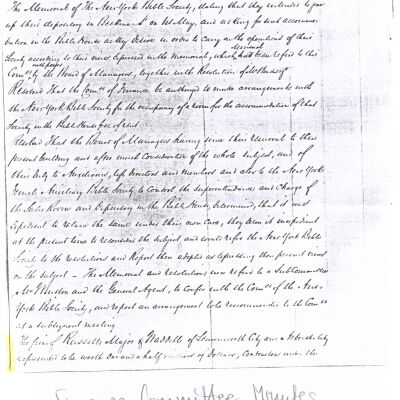 The Memorial of The New York Bible Society, stating that they intended to give
up their depository in Beekman St on 1st May, and asking for such accommo-
dation in the Bible House as they desire in order to carry on the operations of their
Society according to their views expressed in the memorial, which had been refered to this
Come by the Board of Managers, together with the Resolution
Resolved That the Come of Finance be authorized to make arrangements with
the New York Bible Society for the occupancy of a room for the accommodation of that
Society in the Bible House free of rent.
Resolved That the Board of Managers having since their removal to their
present building and after much consideration of the whole subject, and of
their duty to Auxiliaries, life Directors and members and also to the New York
Female Auxiliary Bible Society to control the Superintendence and Charge of
the Sales Room and Depository in the Bible House, determined, that it was
expedient to retain the same under their own care, they deem it inexpedient
at the present time to reconsider the subject and would refer the New York Bible
Society to the resolutions and Report then adopted as expressing their present views
on the subject - The Memorial and resolutions were refered to a Sub Committee
Mr Winston and the General Agent, to confer with the Come of the New
York Bible Society, and report an arrangement to be recommended to the Come
at a subsequent meeting.
The firm of Russells, Major & Waddell of Leavenworth City are a
represented to be worth one and a half millions of Dollars, Contractors under the
Finance Committee Minutes